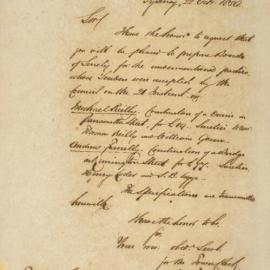 Sydney, 22 Feby 1850
Sir
I have the honor to request that
you will be pleased to prepare Bonds
of Surety for the undermentioned parties
whose Tenders were accepted by the
Council on the 20 Instant viz
Michael Reilly. Construction of a Drain in
Parramatta Street for £
Reilly and William
Andrew Construction of a bridge
Street for £ Sureties
Henry and
The Specifications are transmitted
herewith
I have the honor &c
Sir
Your obed Servt
for the Town Clerk